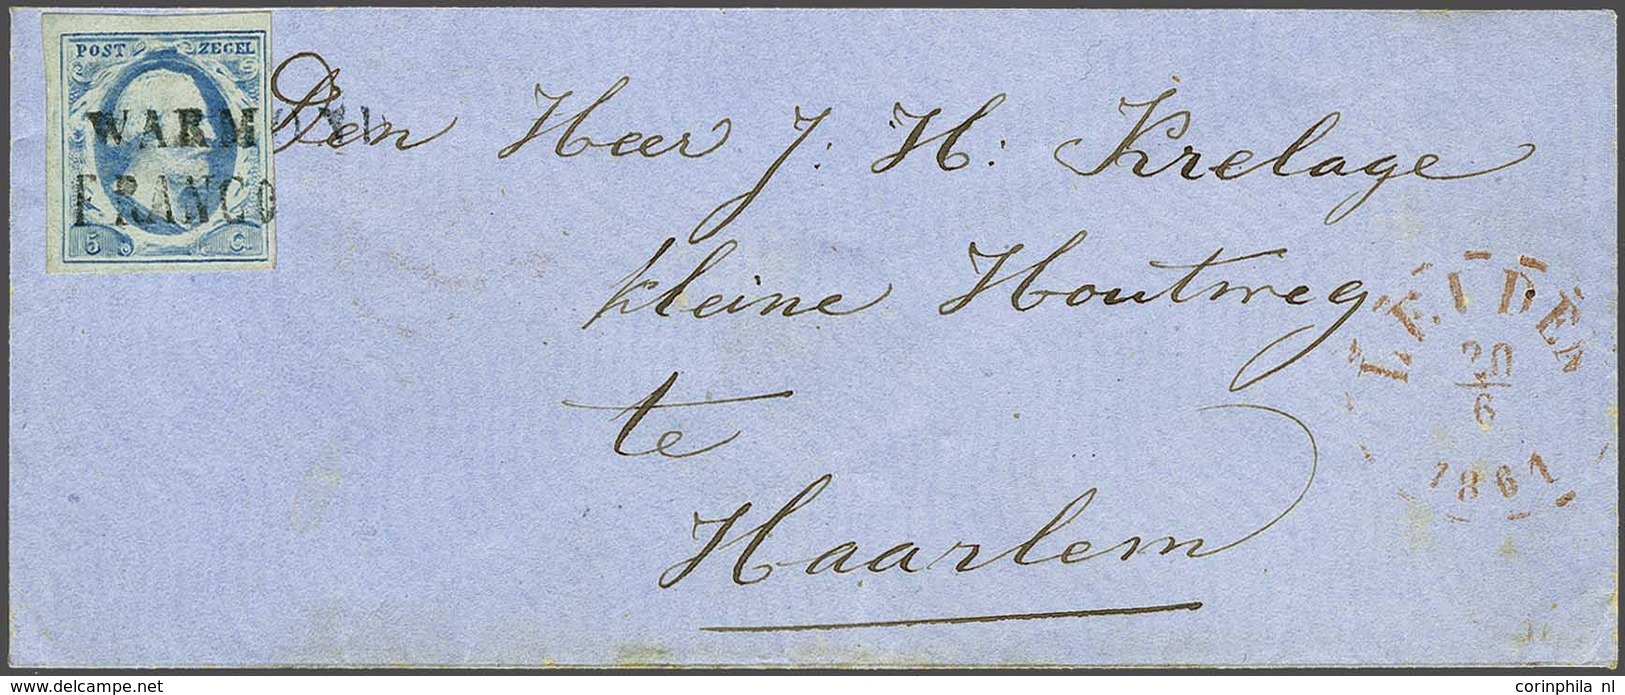 POST ZEGEL
WARMOND
FRANCO
5 C.
Den Heer J. H. Krelage
kleine Houtweg
te
Haarlem
LEIDEN
20
6
1861
www.delcampe.net
corinphila nl